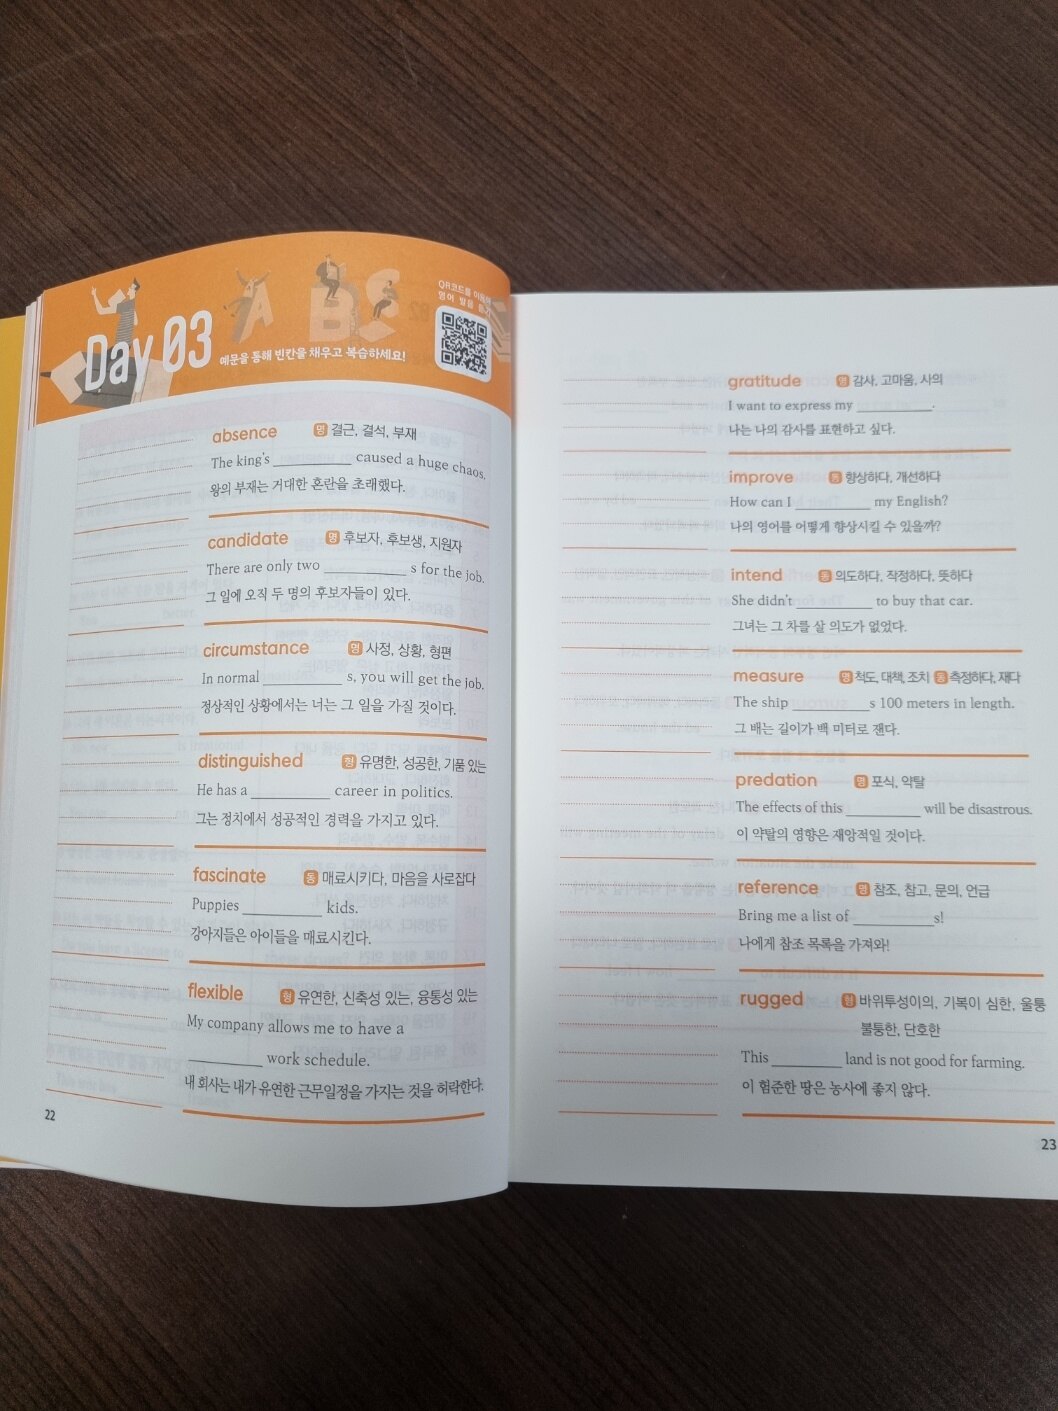 Day 03
예문을 통해 빈칸을 채우고 복습하세요!
QR코드를 이용해
영어 발음 듣기
absence 명 결근, 결석, 부재
The king's __________ caused a huge chaos.
왕의 부재는 거대한 혼란을 초래했다.
candidate 명 후보자, 후보생, 지원자
There are only two __________ s for the job.
그 일에 오직 두 명의 후보자들이 있다.
circumstance 명 사정, 상황, 형편
In normal __________ s, you will get the job.
정상적인 상황에서는 너는 그 일을 가질 것이다.
distinguished 형 유명한, 성공한, 기품 있는
He has a __________ career in politics.
그는 정치에서 성공적인 경력을 가지고 있다.
fascinate 동 매료시키다, 마음을 사로잡다
Puppies __________ kids.
강아지들은 아이들을 매료시킨다.
flexible 형 유연한, 신축성 있는, 융통성 있는
My company allows me to have a
__________ work schedule.
내 회사는 내가 유연한 근무일정을 가지는 것을 허락한다.
22
gratitude 명 감사, 고마움, 사의
I want to express my __________.
나는 나의 감사를 표현하고 싶다.
improve 동 향상하다, 개선하다
How can I __________ my English?
나의 영어를 어떻게 향상시킬 수 있을까?
intend 동 의도하다, 작정하다, 뜻하다
She didn't __________ to buy that car.
그녀는 그 차를 살 의도가 없었다.
measure 명 척도, 대책, 조치 동 측정하다, 재다
The ship __________s 100 meters in length.
그 배는 길이가 백 미터로 잰다.
predation 명 포식, 약탈
The effects of this __________ will be disastrous.
이 약탈의 영향은 재앙적일 것이다.
reference 명 참조, 참고, 문의, 언급
Bring me a list of __________s!
나에게 참조 목록을 가져와!
rugged 형 바위투성이의, 기복이 심한, 울퉁
불퉁한, 단호한
This __________ land is not good for farming.
이 험준한 땅은 농사에 좋지 않다.
23